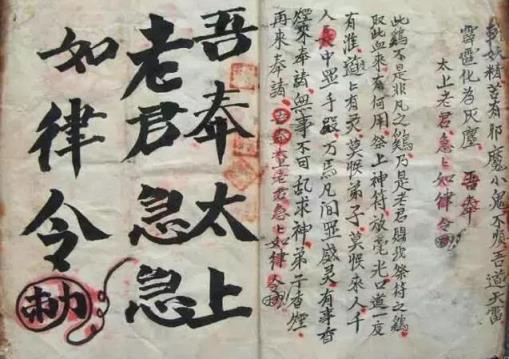 斩妖精若有邪魔小鬼不顺吾道天雷
霹雳化为灰尘 吾奉
太上老君急急如律令
此鷄不是非凡之鷄乃是老君賜我祭符之鷄
取此血来有何用祭上神符放毫光口道一度
有准道上有灵莫恨弟子莫恨来人千
人中罡手毀万馬凡间罡威灵有事香
煙来奉請無事不可乱求神弟子香煙
再来奉請吾奉太上老君急急如律令
吾奉太上
老君急急
如律令
敕